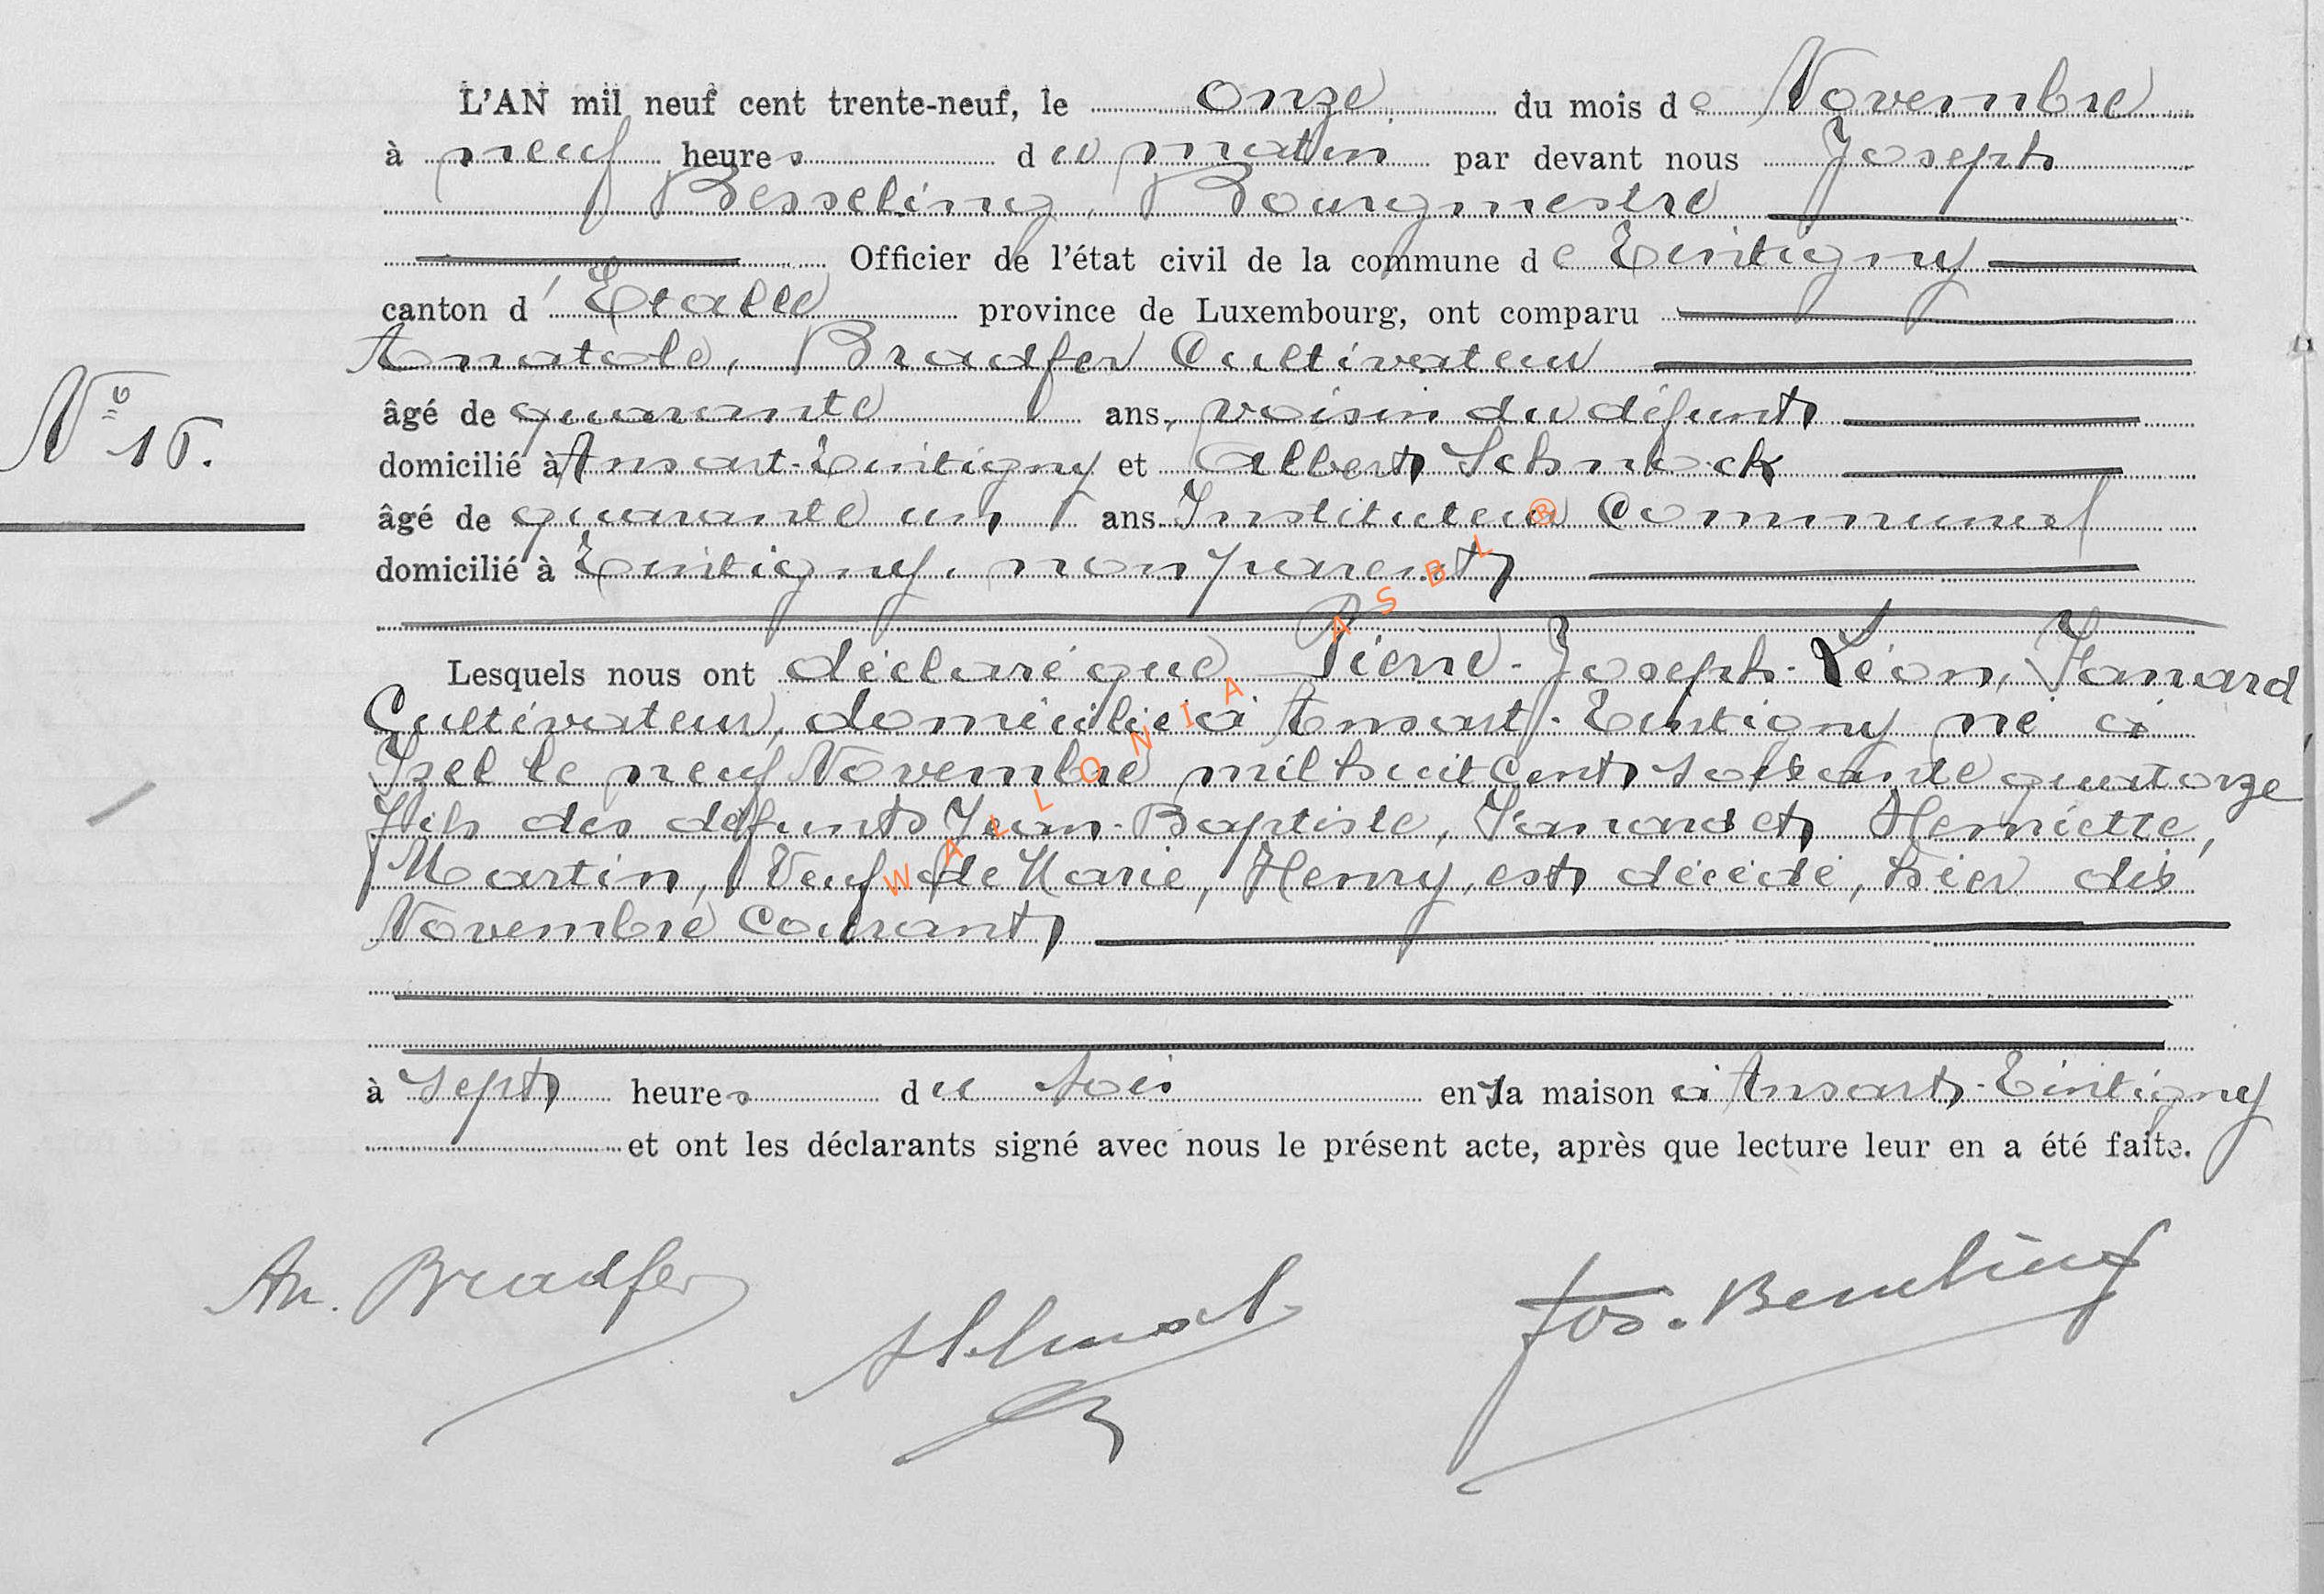 L'AN mil neuf cent trente-neuf, le onze du mois de Novembre
à neuf heures du matin par devant nous Joseph
Besseling, Bourgmestre
Officier de l'état civil de la commune de Tintigny
canton d'Etalle province de Luxembourg, ont comparu
Anatole, Bradfer Cultivateur
âgé de quarante ans, voisin du défunt
N° 16.
domicilié à Ansart-Tintigny et Albert Schnock
âgé de quarante un ans Instituteur Communal
domicilié à Tintigny, non parent
Lesquels nous ont déclaré que Pierre-Joseph-Léon, Jamard
Cultivateur, domicilié à Ansart-Tintigny né à
Izel le neuf Novembre mil huit cent soixante quatorze
fils des défunts Jean-Baptiste, Jamard et Henriette,
Martin, Veuf de Marie, Henry, est décédé, hier dix
Novembre Courant
à sept heures du soir en sa maison à Ansart-Tintigny
et ont les déclarants signé avec nous le présent acte, après que lecture leur en a été faite.
An. Bradfer
Jos. Besseling
WALLONIA ASBL ®